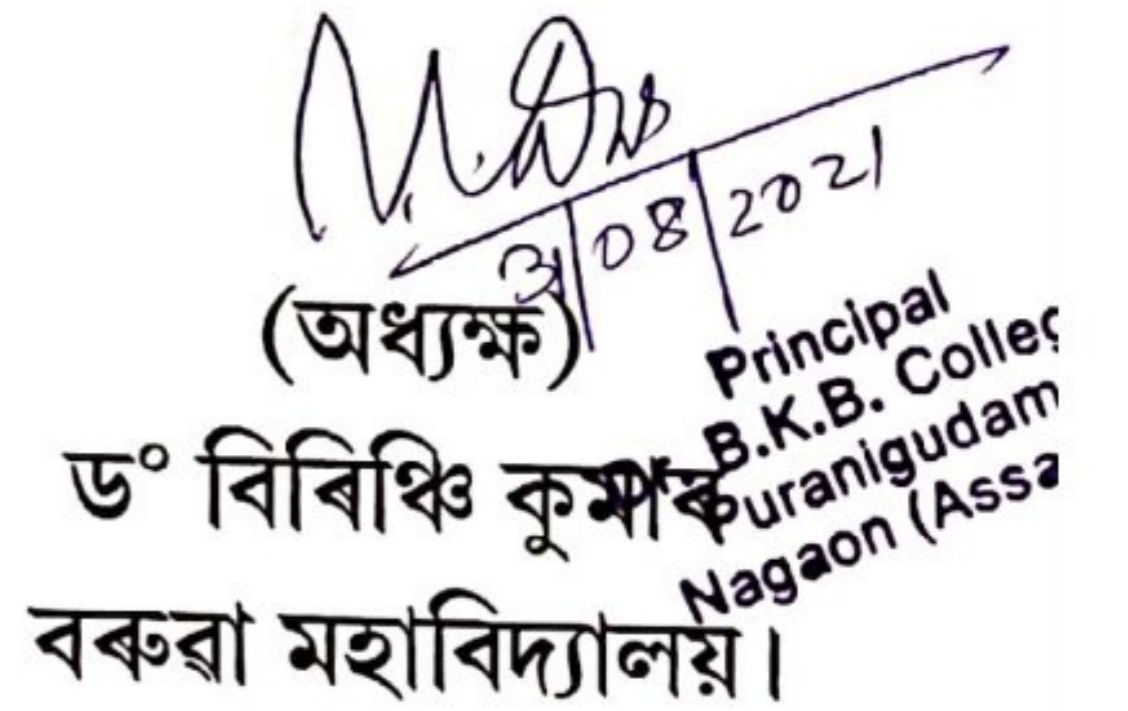 08 2021
(অধ্যক্ষ)
ড° বিৰিঞ্চি কুমাৰ
বৰুৱা মহাবিদ্যালয়।
Principal
B.K.B. Colleg
Puranigudam
Nagaon (Assa